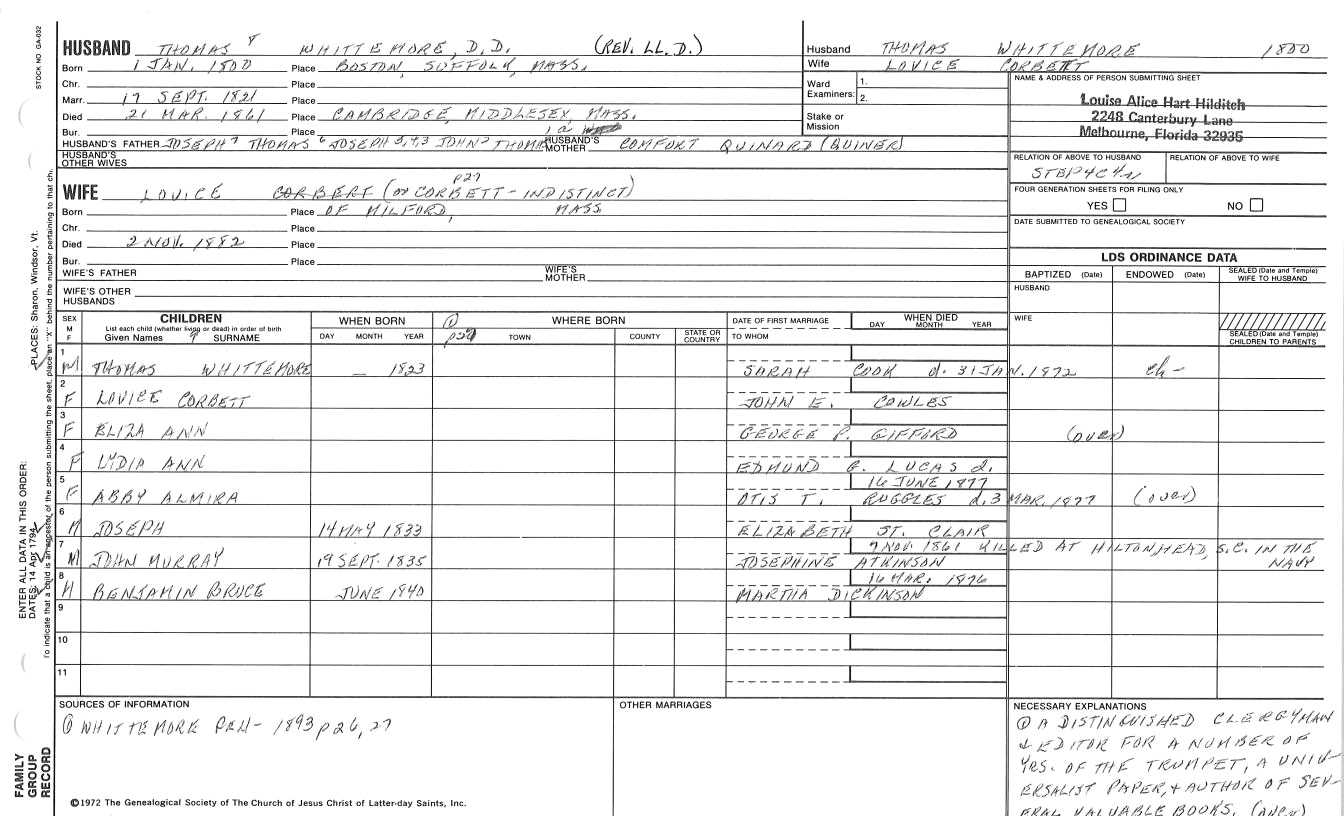 STOCK NO GA-032
HUSBAND THOMAS 8 WHITTEMORE, D.D. (REV. LL.D.)
Born 1 JAN. 1800 Place BOSTON, SUFFOLK, MASS.
Chr. Place
Marr. 17 SEPT. 1821 Place
Died 21 MAR. 1861 Place CAMBRIDGE, MIDDLESEX, MASS.
Bur. Place
HUSBAND'S FATHER JOSEPH 7 THOMAS 6 JOSEPH 5,4,3 JOHN 2 THOMAS HUSBAND'S MOTHER COMFORT QUINARD (QUINER)
HUSBAND'S OTHER WIVES
Husband THOMAS WHITTEMORE 1800
Wife LOVICE CORBETT
Ward Examiners: 1.
2.
Stake or Mission
NAME & ADDRESS OF PERSON SUBMITTING SHEET
Louise Alice Hart Hilditch
2248 Canterbury Lane
Melbourne, Florida 32935
RELATION OF ABOVE TO HUSBAND RELATION OF ABOVE TO WIFE
FOUR GENERATION SHEETS FOR FILING ONLY
YES NO
DATE SUBMITTED TO GENEALOGICAL SOCIETY
p27
WIFE LOVICE CORBERT (or CORBETT - INDISTINCT)
Born Place OF MILFORD, MASS
Chr. Place
Died 2 NOV. 1882 Place
Bur. Place
WIFE'S FATHER WIFE'S MOTHER
WIFE'S OTHER HUSBANDS
LDS ORDINANCE DATA
BAPTIZED (Date) ENDOWED (Date) SEALED (Date and Temple) WIFE TO HUSBAND
HUSBAND
WIFE
SEALED (Date and Temple) CHILDREN TO PARENTS
SEX M F CHILDREN
List each child (whether living or dead) in order of birth
Given Names 9 SURNAME
WHEN BORN
DAY MONTH YEAR
① p27 WHERE BORN
TOWN COUNTY STATE OR COUNTRY
DATE OF FIRST MARRIAGE
TO WHOM
WHEN DIED
DAY MONTH YEAR
1 M THOMAS WHITTEMORE — 1823 SARAH COOK d. 31 JAN. 1872 ch-
2 F LOVICE CORBETT JOHN E. COWLES
3 F ELIZA ANN GEORGE P. GIFFORD (over)
4 F LYDIA ANN EDMUND G. LUCAS d.
16 JUNE 1877
5 F ABBY ALMIRA OTIS T. RUGGLES d. 3 MAR. 1877 (over)
6 M JOSEPH 14 MAY 1833 ELIZABETH ST. CLAIR
7 NOV. 1861 KILLED AT HILTONHEAD, S.C. IN THE NAVY
7 M JOHN MURRAY 19 SEPT. 1835 JOSEPHINE ATKINSON
16 MAR. 1876
8 M BENJAMIN BRUCE JUNE 1840 MARTHA DICKINSON
9
10
11
SOURCES OF INFORMATION
① WHITTEMORE 1893 p26,27
OTHER MARRIAGES
NECESSARY EXPLANATIONS
① A DISTINGUISHED CLERGYMAN
& EDITOR FOR A NUMBER OF
YRS. OF THE TRUMPET, A UNIV-
ERSALIST PAPER, & AUTHOR OF SEV-
ERAL VALUABLE BOOKS. (over)
©1972 The Genealogical Society of The Church of Jesus Christ of Latter-day Saints, Inc.
FAMILY
GROUP
RECORD
ENTER ALL DATA IN THIS ORDER:
DATES: 14 Apr 1794
PLACES: Sharon, Windsor, Vt.
To indicate that a child is an ancestor of the person submitting the sheet, place an "X" behind the number pertaining to that ch